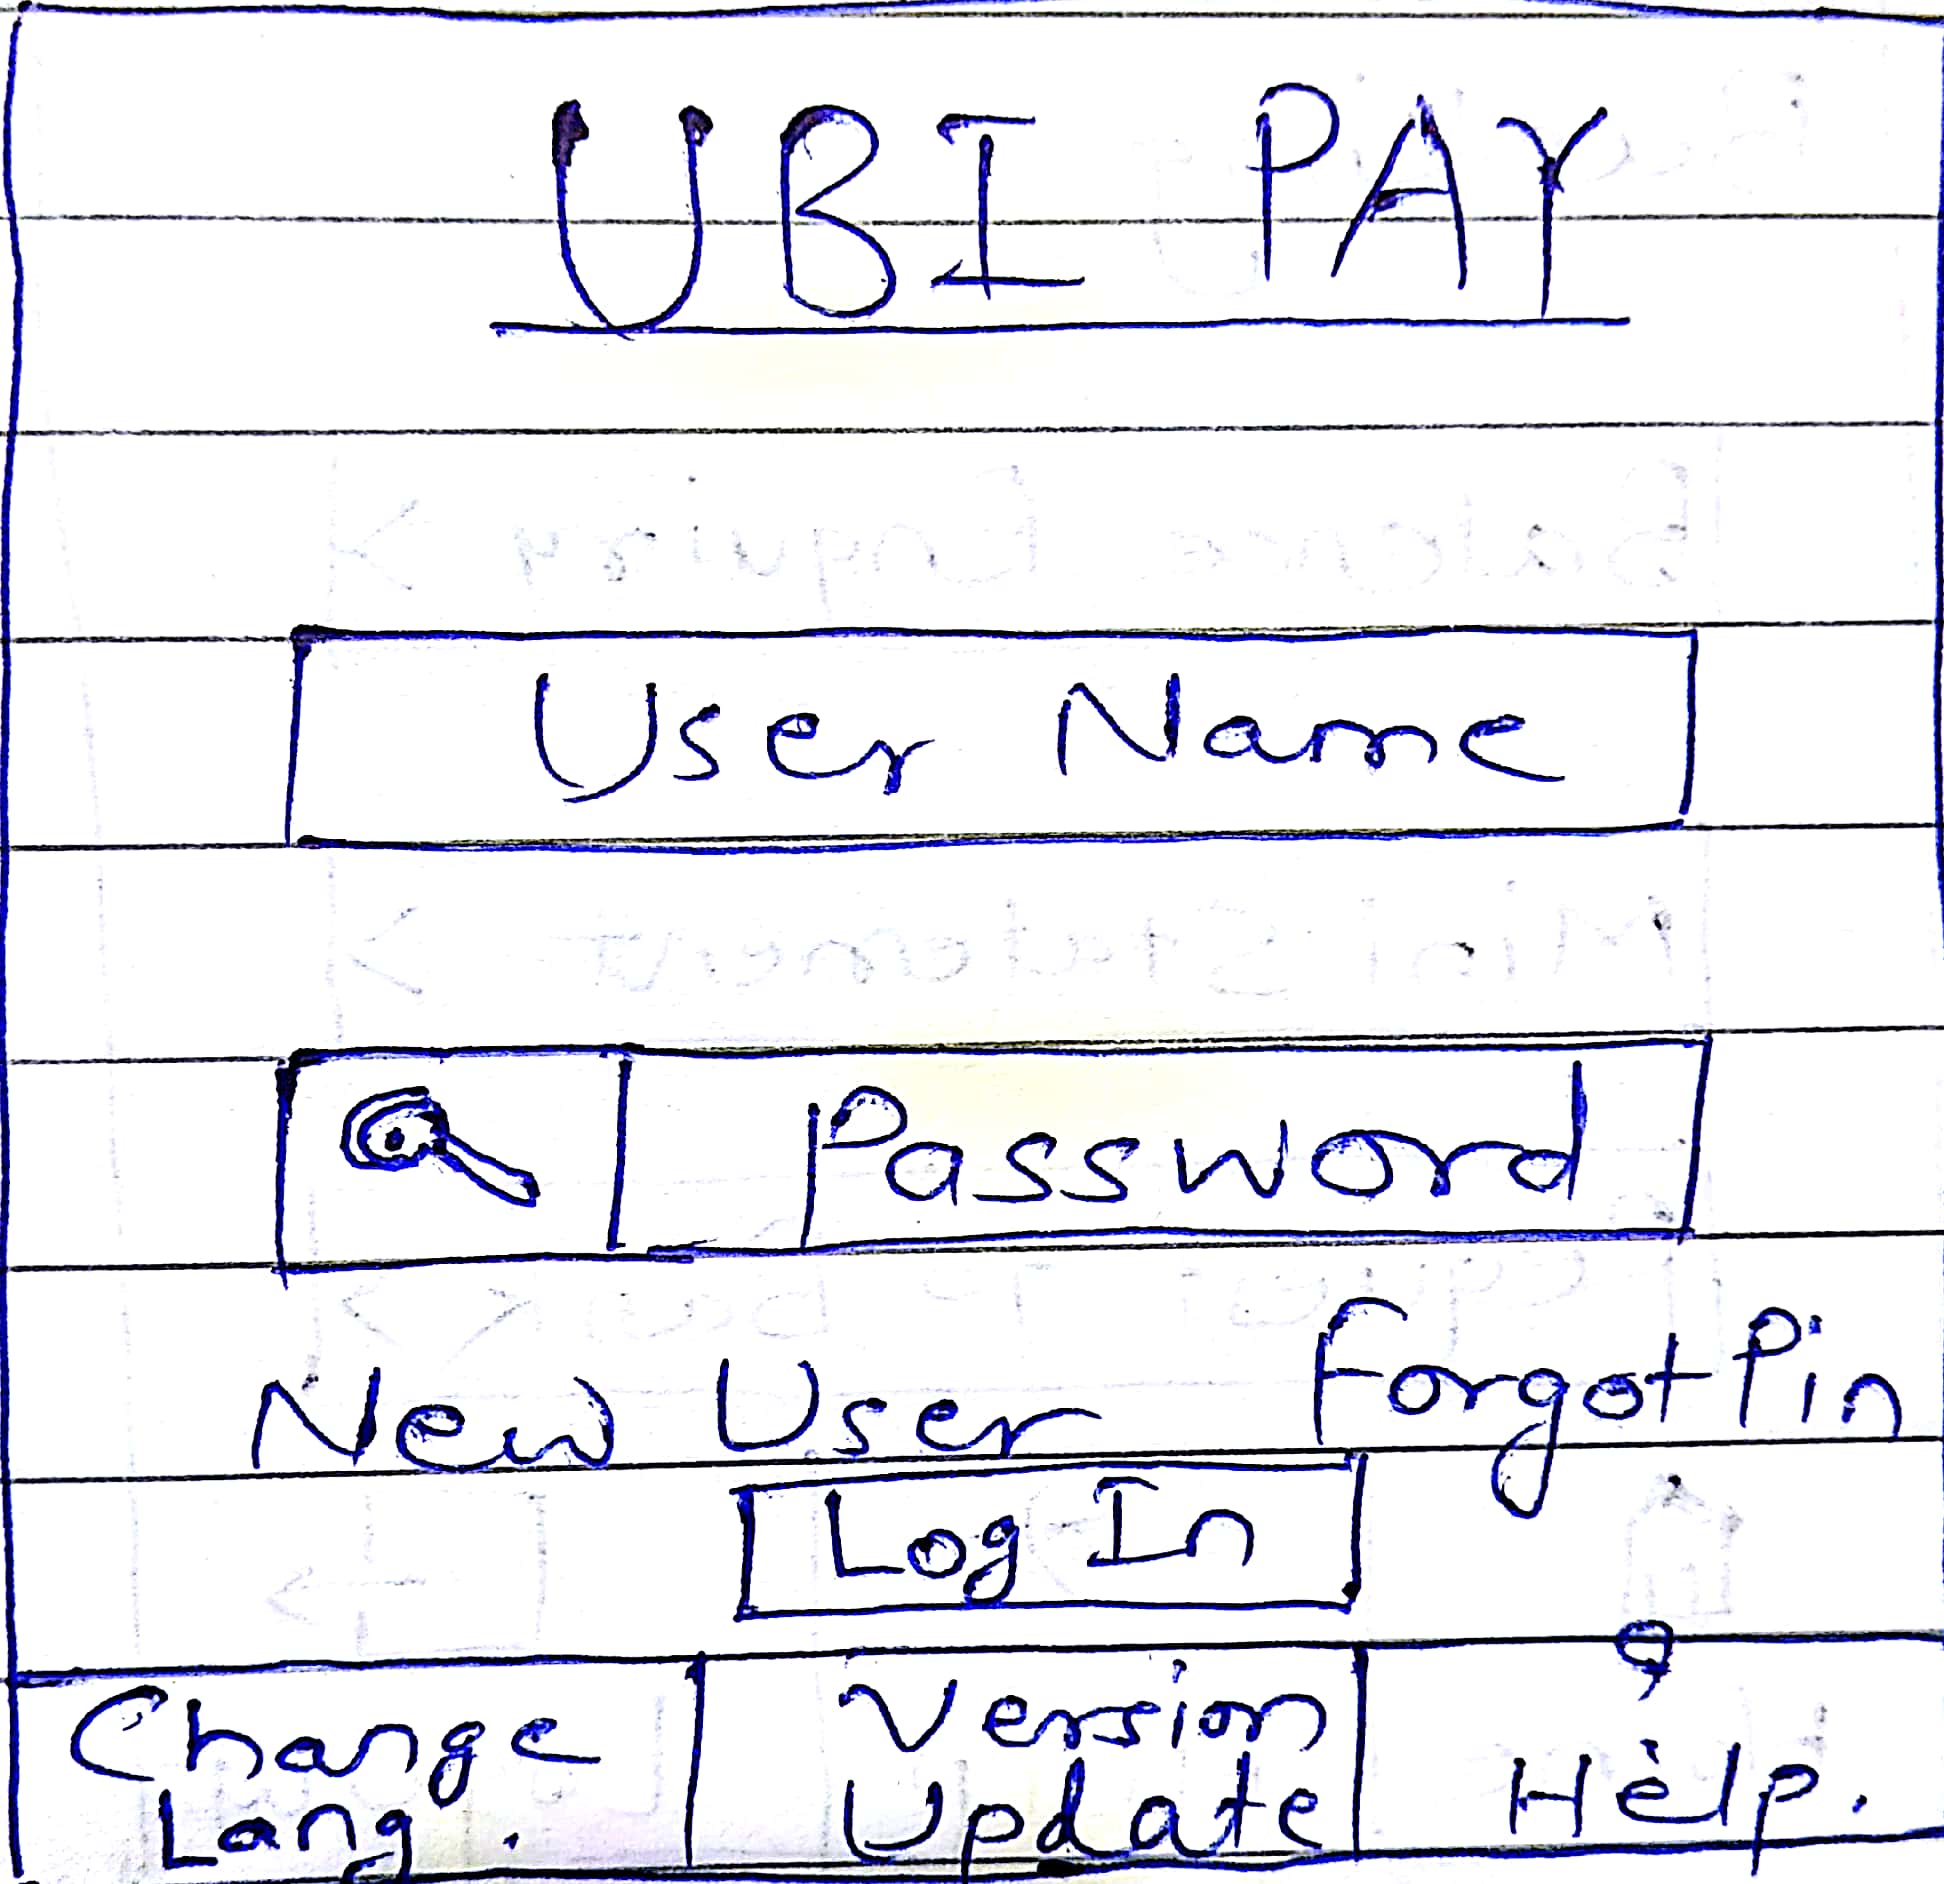 UBI PAY
User Name
Password
New User Forgot Pin
Log In
Change Lang.
Version Update
Help.